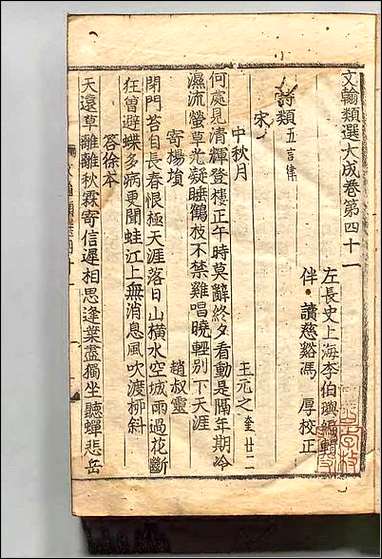 文翰類選大成卷第四十一
左長史上海李伯璵編輯
伴讀慈谿馮厚校正
詩類 五言律
宋
中秋月 王元之 奎廿二
何處見清輝登樓正午時莫辭終夕看動是隔年期冷
濕流螢草光凝睡鶴枝不禁雞唱曉輕別下天涯
寄楊塤 趙叔靈
閉門苔自長春恨極天涯落日山橫水空城雨過花斷
狂曾避蝶多病更聞蛙江上無消息風吹渡柳斜
答徐本
天遠草離離秋霖寄信遲相思逢葉盡獨坐聽蟬悲岳